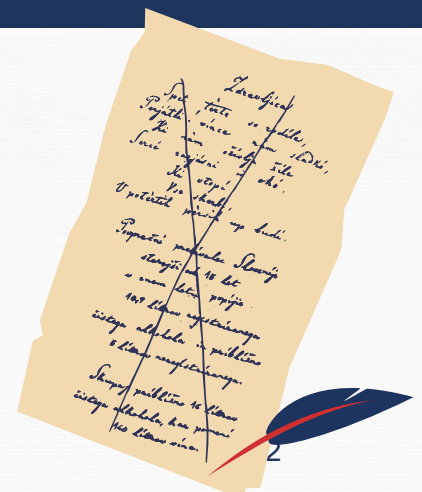 Zdravljica
Spet trte so rodile,
Prijat'li, vince nam sladkó,
Ki nam oživlja žile
Sercé razjásni
Ki utopí okó.
Vse skerbí
V potertih persih up budí.
Popreční prebivalec Slovenije
starejši od 15 let
v enem letu popije
10,9 litrov registriranega
čistega alkohola in približno
5 litrov neregistriranega.
Skupaj približno 15 litrov
čistega alkohola, kar pomeni
160 litrov vina.
2